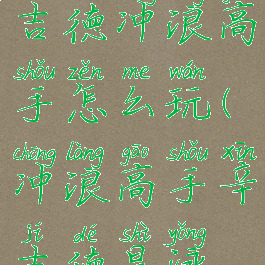 吉德冲浪高
shǒu zěn me wán
手怎么玩(
chōng làng gāo shǒu xīn
冲浪高手辛
jí dé shì yǒng
吉德是